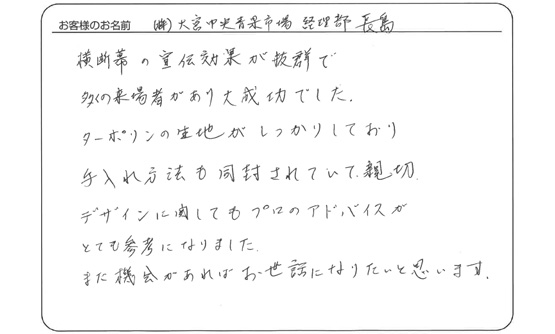 お客様のお名前 (株)大宮中央青果市場 経理部 長島
横断幕の宣伝効果が抜群で
多くの来場者があり大成功でした。
ターポリンの生地がしっかりしており
手入れ方法も同封されていて、親切。
デザインに関してもプロのアドバイスが
とても参考になりました。
また機会があればお世話になりたいと思います。